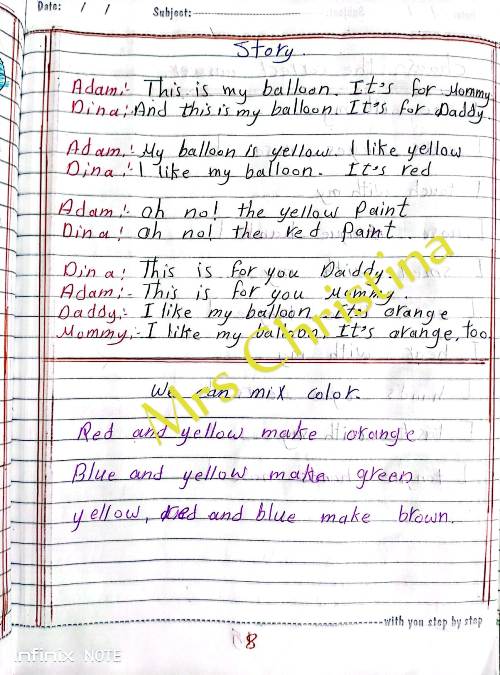 Date: / / Subject:
Story.
Adam:- This is my balloon. It's for Mommy
Dina: And this is my balloon. It's for Daddy.
Adam: My balloon is yellow. I like yellow
Dina: I like my balloon. It's red
Adam:- oh no! the yellow Paint
Dina: oh no! the red Paint.
Dina: This is for you Daddy.
Adam:- This is for you Mommy.
Daddy:- I like my balloon. It's orange
Mommy:- I like my balloon. It's orange, too.
Mrs Christina
We can mix color.
Red and yellow make orange
Blue and yellow make green
yellow, red and blue make brown.
with you step by step
8
Infinix NOTE